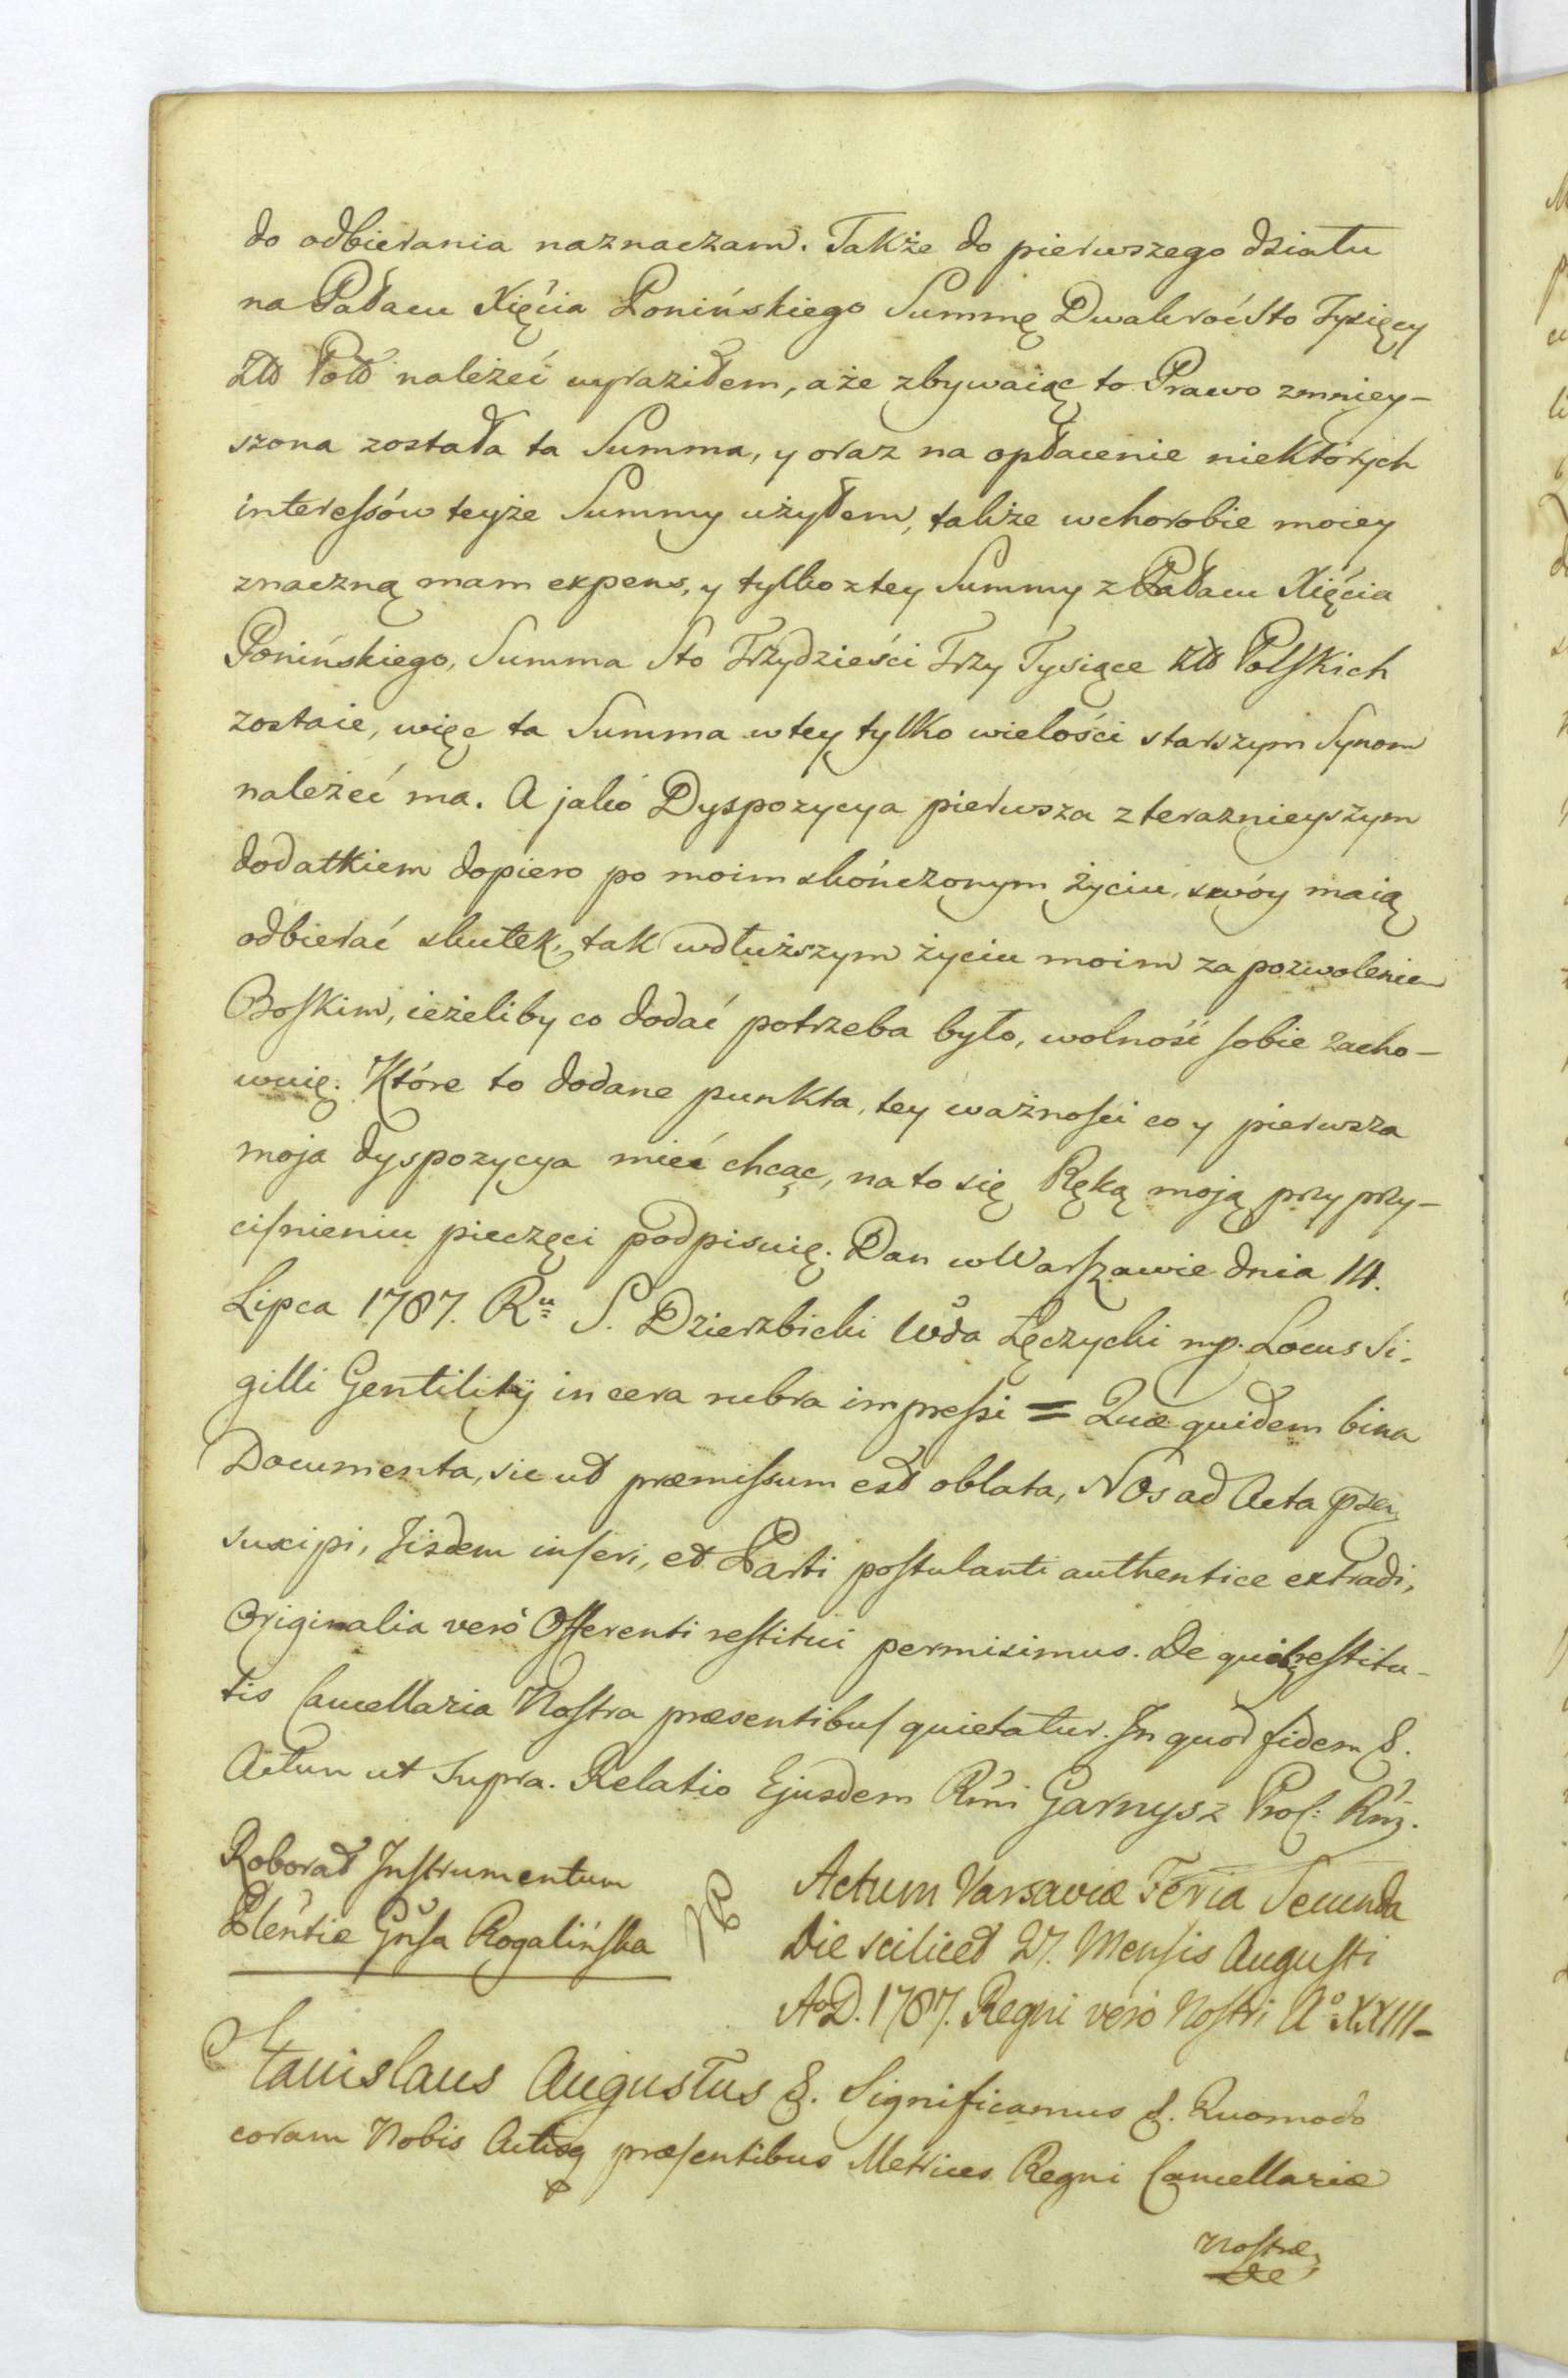 do odbierania naznaczam. Także do pierwszego działu
na Pałacu Xięcia Ponińskiego Summę Dwakroć Sto Tysięcy
Złł Poll należeć wyraziłem, a że zbywaiąc to Prawo zmniey-
szona została ta Summa, y oraz na opłacenie niektórych
interessów teyże Summy użyłem, także w chorobie moiey
znaczną mam expens, y tylko z tey Summy z Pałacu Xięcia
Ponińskiego, Summa Sto Trzydzieści Trzy Tysiące Złł Polskich
zostaie, więc ta Summa w tey tylko wielości starszym Synom
należeć ma. A jako Dyspozycya pierwsza z teraznieyszym
dodatkiem dopiero po moim skończonym życiu, swóy maią
odbierać skutek, tak w dłuższym życiu moim za pozwoleniem
Boskim, ieżeliby co dodać potrzeba było, wolność sobie zacho-
wuię. Które to dodane punkta, tey ważności co y pierwsza
moja dyspozycya mieć chcąc, na to się Ręką moją przy przy-
ciśnieniu pieczęci podpisuię. Dan w Warszawie dnia 14.
Lipca 1787. Ru S. Dzierzbicki Wda Łęczycki mp. Locus Si-
gilli Gentilitij in cera rubra impressi = Quæ quidem bina
Documenta, sic ut præmissum est oblata, Nos ad Acta
suscipi, Iisdem inseri, et Parti postulanti authentice extradi,
Originalia verò Offerenti restitui permisimus. De quibq restitu-
tis Cancellaria Nostra præsentibus quietatur. In quor fidem &.
Actum ut Supra. Relatio Ejusdem Rmi Garnysz Procî Rni.
Roborat Instrumentum
Plentiæ Gnsa Rogalińska
Actum Varsaviæ Feria Secunda
Die scilicet 27. Mensis Augusti
AoD. 1787. Regni verò Nostri Ao XXIII-
Stanislaus Augustus &. Significamus &. Quomodo
coram Nobis Actisq præsentibus Metrices Regni Cancellariæ
Nostræ